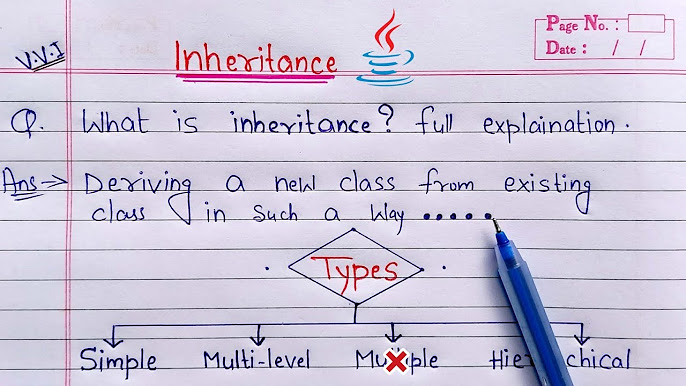 Page No. :
Date : / /
V.V.I
Inheritance
Q. What is inheritance? full explaination.
Ans→ Deriving a new class from existing
class in such a way .....
Types
Simple Multi-level